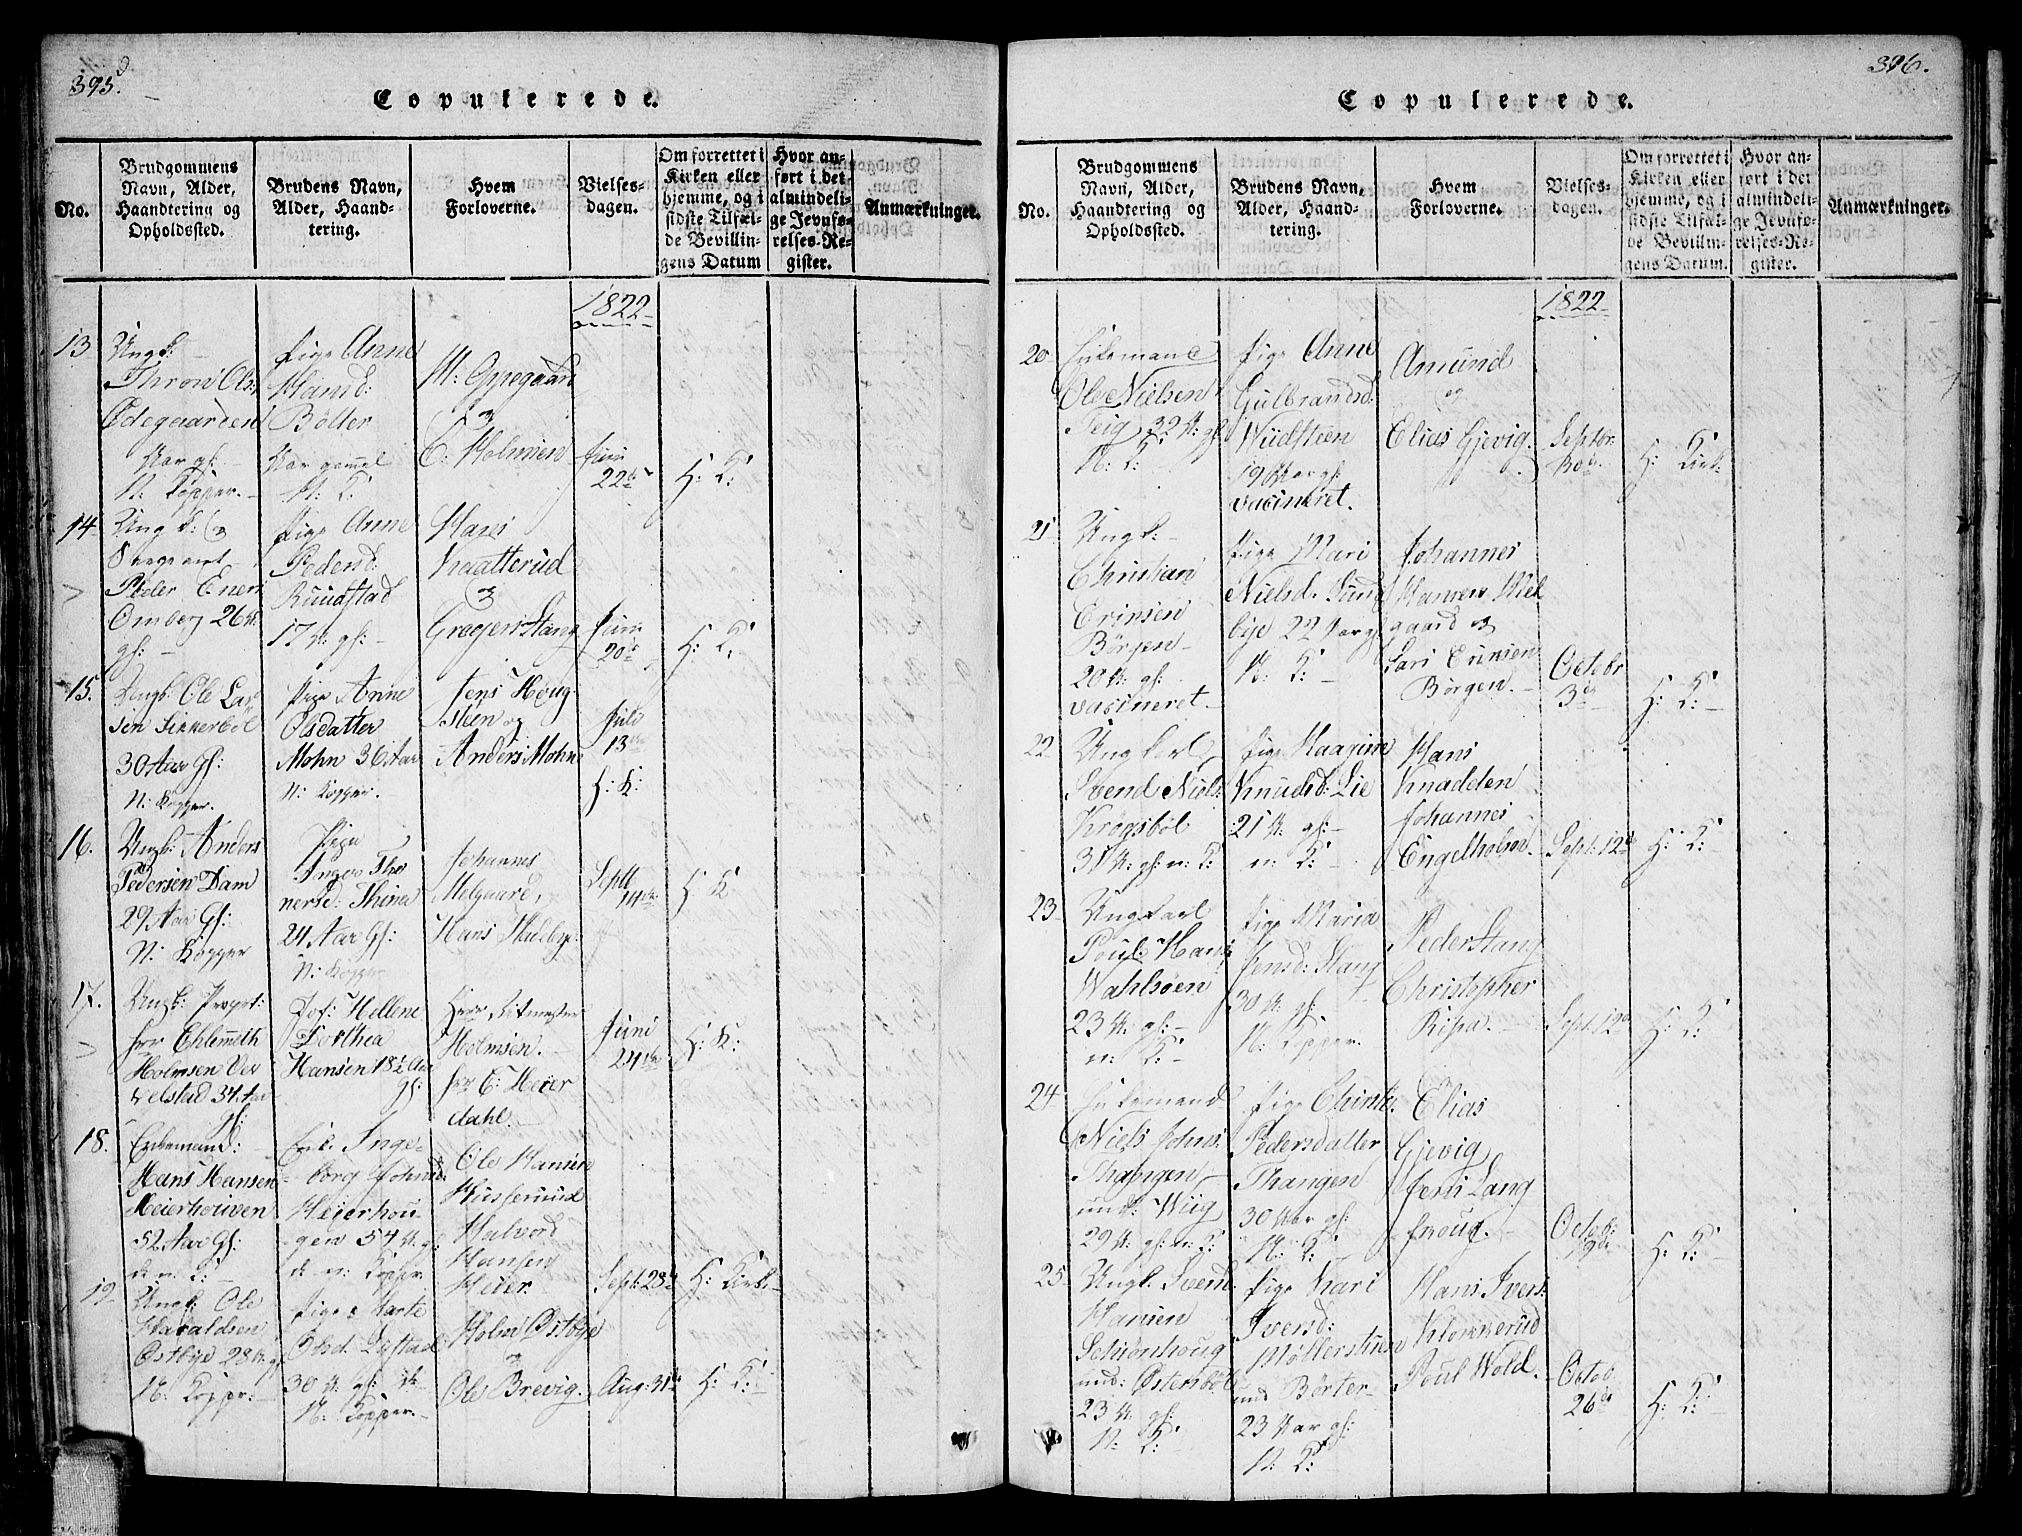 395.
Copulerede.
No.
Brudgommens
Navn, Alder,
Haandtering og
Opholdssted.
Brudens Navn,
Alder, Haand-
tering.
Hvem
Forloverne.
Vielses-
dagen.
Om forrettet i
Kirken eller
hjemme, og i
sidste Tilfæl-
de Bevillin-
gens Datum
Hvor an-
ført i det
almindeli-
ge Jevnfø-
relses-Re-
gister.
Anmærkninger.
1822
13
Ungk:
Thron Ols:
Ødegaarden
Aar gl.
N: Kopper.
Pige Anne
Hansd:
Bölter
Aar gamel
N: K:
M: Oppegaard
og
C: Holmsen
Juni
22de
H: K:
14
Ungk: og
Peder Eners
Omberg 26 A:
gl:
Pige Anne
Pedersd:
Ruudstad
17 A: gl:
Hans
Kaatterud
og
Gregers Stang
Juni
20de
H: K:
15.
Ungk: Ole Lar
sen Sikkerböl
30 Aar Gl:
N: Kopper.
Pige Anne
Olsdatter
Mohn 36 Aar
N: Kopper.
Jens Houg-
steen og
Anders Mohn
Juli
13de
H: K:
16.
Ungk: Anders
Pedersen Dam
29 Aar Gl:
N: Kopper
Pige
Inger The
nersd: Thina
24 Aar Gl:
N: Kopper
Johannes
Melgaard,
Hans Huleby
Septb
14de
H: K:
17.
Ungk: Propri:
Herr Ehlemeth
Holmsen Ver
velstad 34 Aar
Gl:
Jof: Hellene
Dorthea
Hansen 18½ Aar
gl:
Herr Ritmester
Holmsen.
Hrr C: Heier
dahl.
Juni
24de
H: K:
18.
Enkemand:
Hans Hansen
Heierhouven
52 Aar Gl:
d: n: K:
Enke Inge-
borg Johnsd:
Heierhou-
gen 54 A: gl:
d: n: Kopper
Ole Hansen
Husserud
Halvord
Hansen
Heier
Sept: 28de
H: Kirke
19
Ungk: Ole
Haraldsen
Ostbye 28 A: gl:
N: Kopper:
Pige Karte
Olsd. Dystad
30 A: gl:
N: Kopper.
Holm Østbye
og
Ole Brevig.
Aug: 31te
H: K:
396.
Copulerede.
No.
Brudgommens
Navn, Alder,
Haandtering og
Opholdssted.
Brudens Navn,
Alder, Haand-
tering.
Hvem
Forloverne.
Vielses-
dagen.
Om forrettet i
Kirken eller
hjemme, og i
sidste Tilfæl-
de Bevillin-
gens Datum.
Hvor an-
ført i det
almindeli-
ge Jevnfø-
relses-Re-
gister.
Anmærkninger.
1822
20
Enkemand
Ole Nielsen
Teig 32 A: gl:
N: K:
Pige Anne
Gulbrandsd:
Wüdsteen
19 Aar gl:
vacineret.
Amund
og
Elias Gjevig.
Septbr
H: Kirk:
21
Ungk:
Christian
Ericsen
Börgen
20 A: gl:
vacineret.
Pige Mari
Nielsd: Sund
bye 22 Aar gl:
N: K:
Johannes
Hansen Mel
gaard og
Lars Ericsen
Börgen.
Octobr
3de
H: K:
22
Ungkarl
Svend Niels:
Krogsböl
31 A: gl: n: K:
Pige Kaagine
Knudsd: Lie
21 A: gl:
n: K:
Hans
Knadden
Johannes
Engelholm
Sept: 12de
H: K:
23
Ungkarl
Poul Hans
Wahlsöen
23 A: gl:
n: K:
Pige Maria
Jensd: Stang
30 A: gl:
N: Kopper.
Peder Stang
Christopher
Risa.
Sept: 12de
H: K:
24
Enkemand
Niels Johns:
Thangen
und: Wiig
29 A: gl: n: K:
Pige Christi
Pedersdatter
Thangen
30 Aar gl:
N: K:
Elias
Gjevig
Jens Lang
froug.
Octob:
19de
H: K:
25
Ungk: Svend
Hansen
Schönhoug
und: Østensböl
23 A: gl:
N: K:
Pige Kari
Iversd:
Möllerstuen
und Börter
23 Aar gl:
N: K:
Hans Ivers:
Klokkerud
Poul Wold.
Octob
26de
H: K: